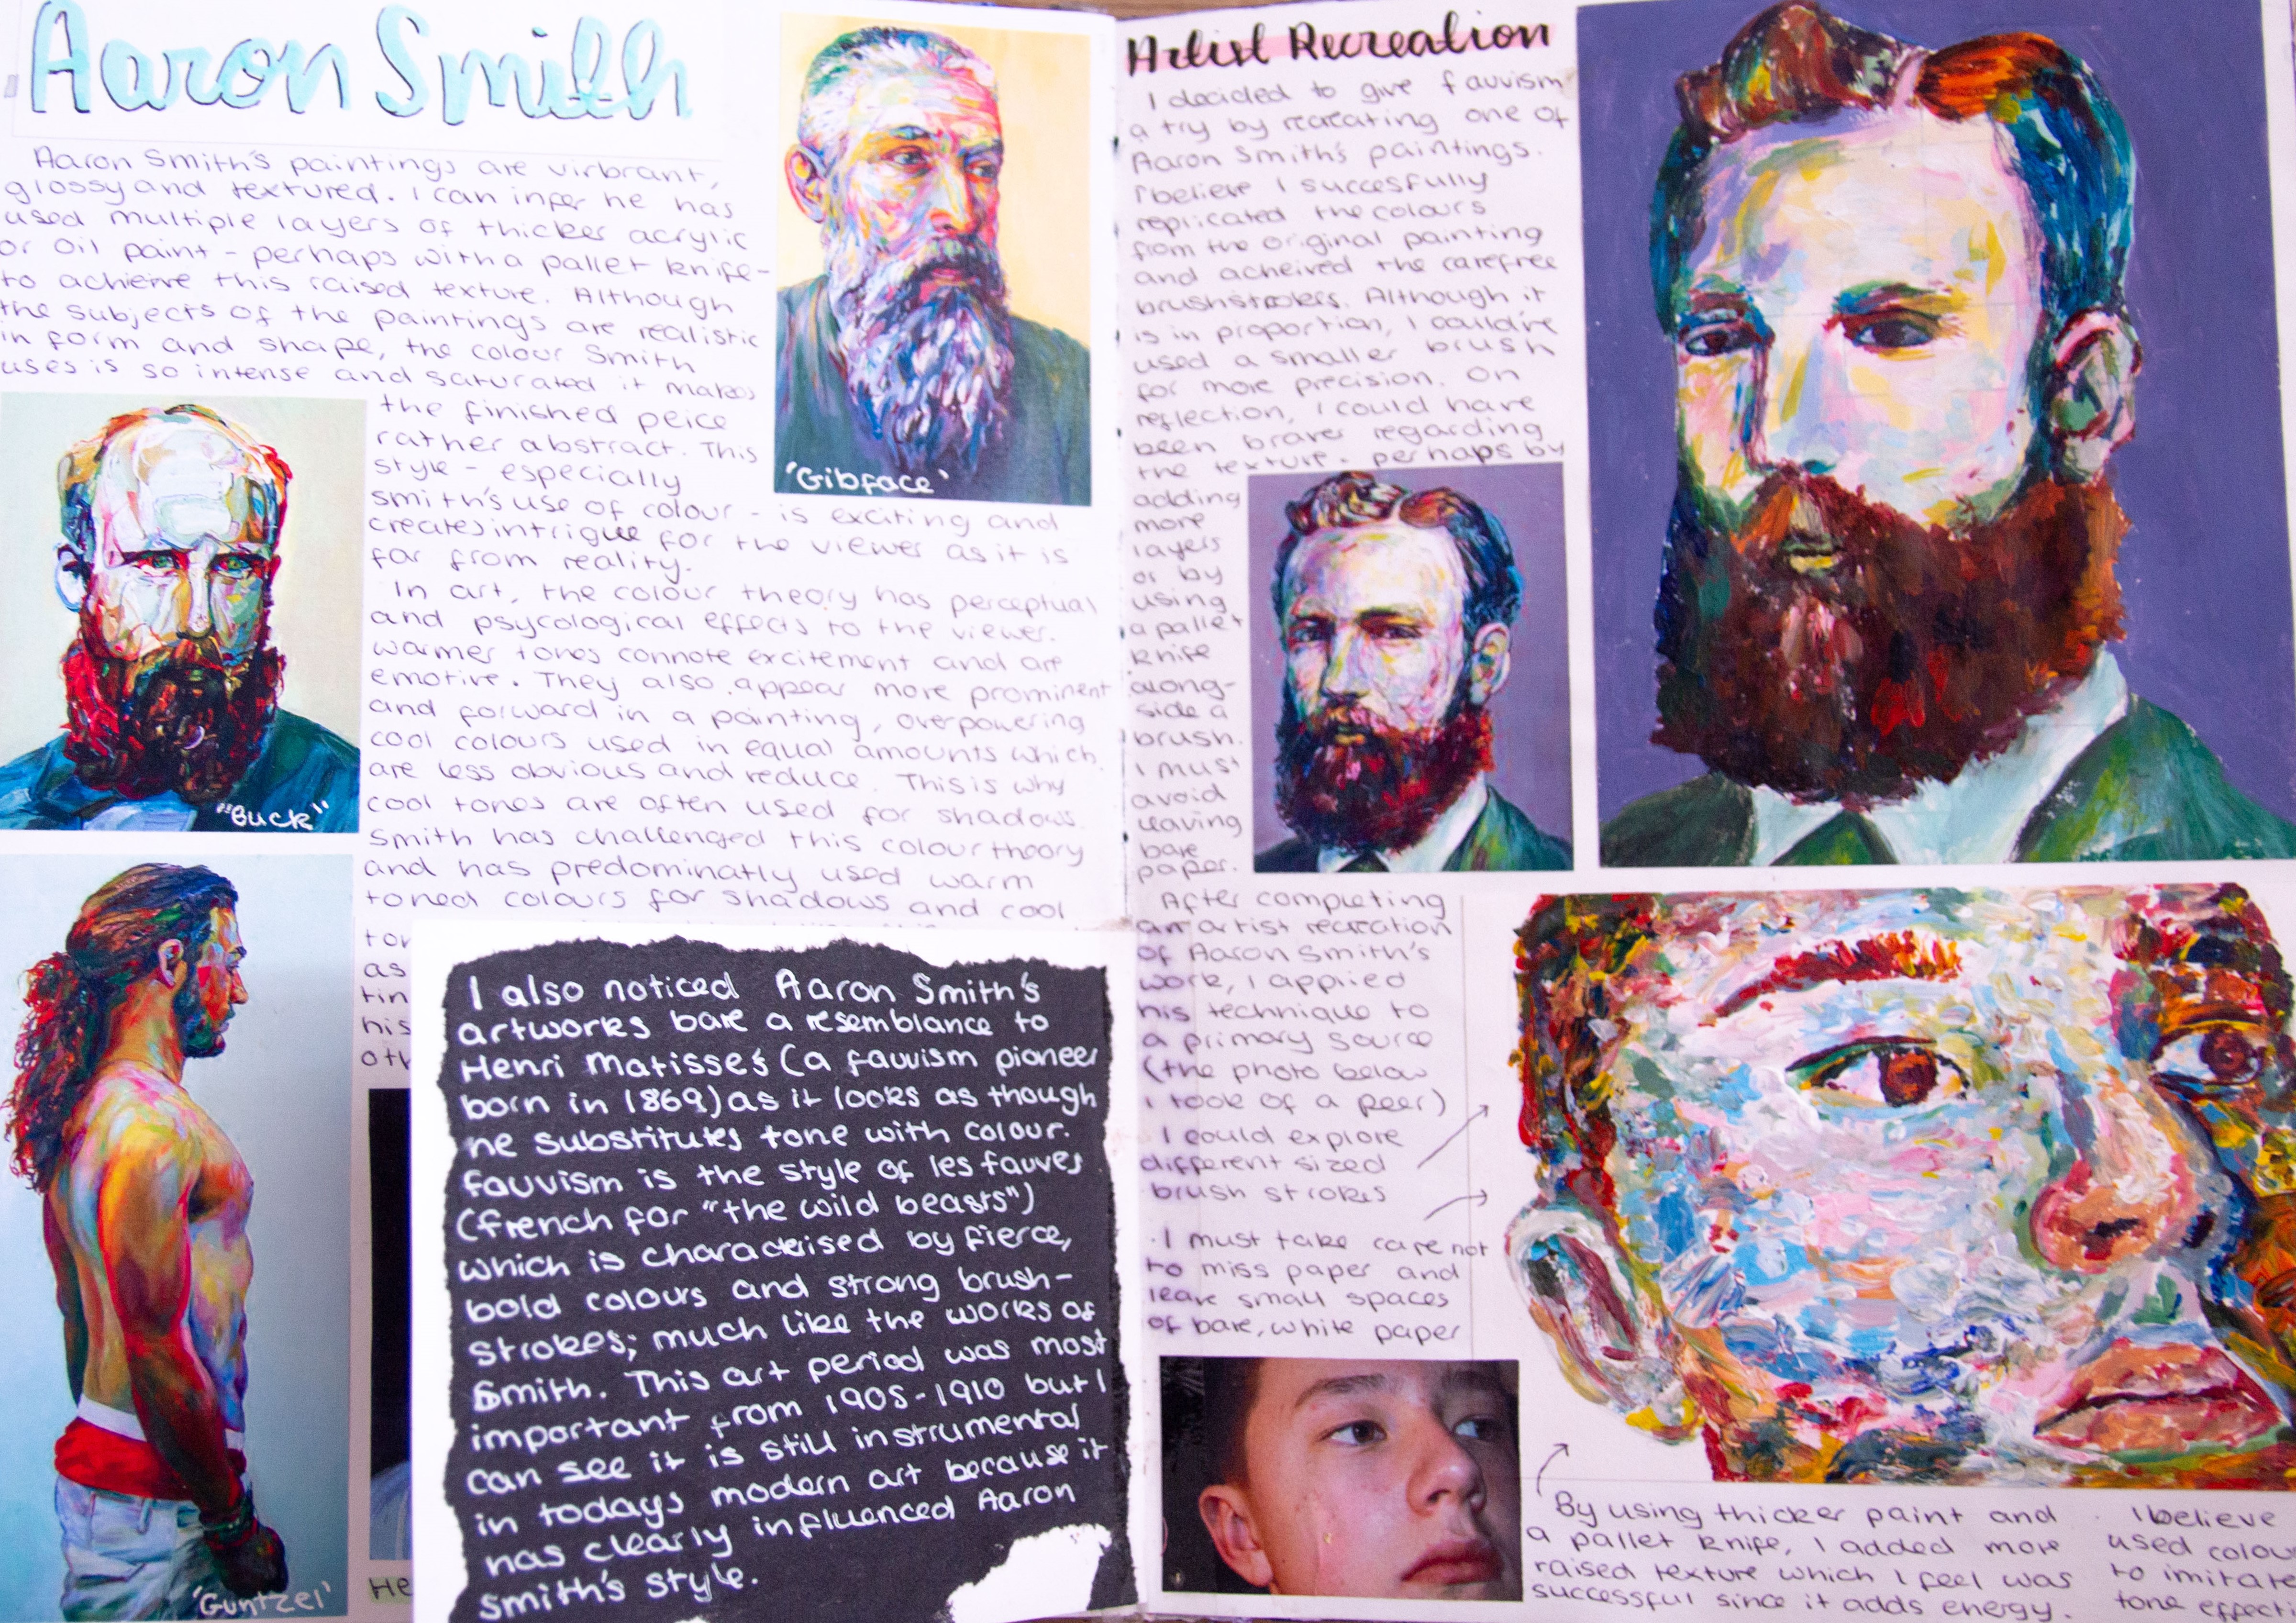 Aaron Smith
Aaron Smith's paintings are virbrant,
glossy and textured. I can infer he has
used multiple layers of thicker acrylic
or oil paint - perhaps with a pallet knife -
to achieve this raised texture. Although
the subjects of the paintings are realistic
in form and shape, the colour Smith
uses is so intense and saturated it makes
the finished peice
rather abstract. This
style - especially
smith's use of colour - is exciting and
creates intrigue for the viewer as it is
far from reality.
In art, the colour theory has perceptual
and psycological effects to the viewer.
warmer tones connote excitement and are
emotive. They also appear more prominent
and forward in a painting, overpowering
cool colours used in equal amounts which
are less obvious and reduce. This is why
cool tones are often used for shadows.
Smith has challenged this colour theory
and has predominatly used warm
toned colours for shadows and cool
as
his
'Gibface'
"Buck"
'Guntzel'
He
I also noticed Aaron Smith's
artworks bare a resemblance to
Henri Matisse's (a fauvism pioneer
born in 1869) as it looks as though
he substitutes tone with colour.
Fauvism is the style of les fauves
(french for "the wild beasts")
which is characterised by fierce,
bold colours and strong brush-
strokes; much like the works of
Smith. This art period was most
important from 1905-1910 but I
can see it is still instrumental
in todays modern art because it
has clearly influenced Aaron
Smith's style.
Artist Recreation
I decided to give fauvism
a try by recreating one of
Aaron Smith's paintings.
I believe I succesfully
replicated the colours
from the original painting
and acheived the carefree
brushstrokes. Although it
is in proportion, I could've
used a smaller brush
for more precision. On
reflection, I could have
been braver regarding
the texture - perhaps by
adding
more
layers
or by
using
a pallet
knife
along-
side a
brush.
I must
avoid
leaving
bare
paper.
After completing
an artist recreation
of Aaron Smith's
work, I applied
his technique to
a primary source
(the photo below
I took of a peer)
I could explore
different sized
brush strokes
· I must take care not
to miss paper and
leave small spaces
of bare, white paper
By using thicker paint and
a pallet knife, I added more
raised texture which I feel was
successful since it adds energy.
· I believe
used colou
to imitate
tone effect